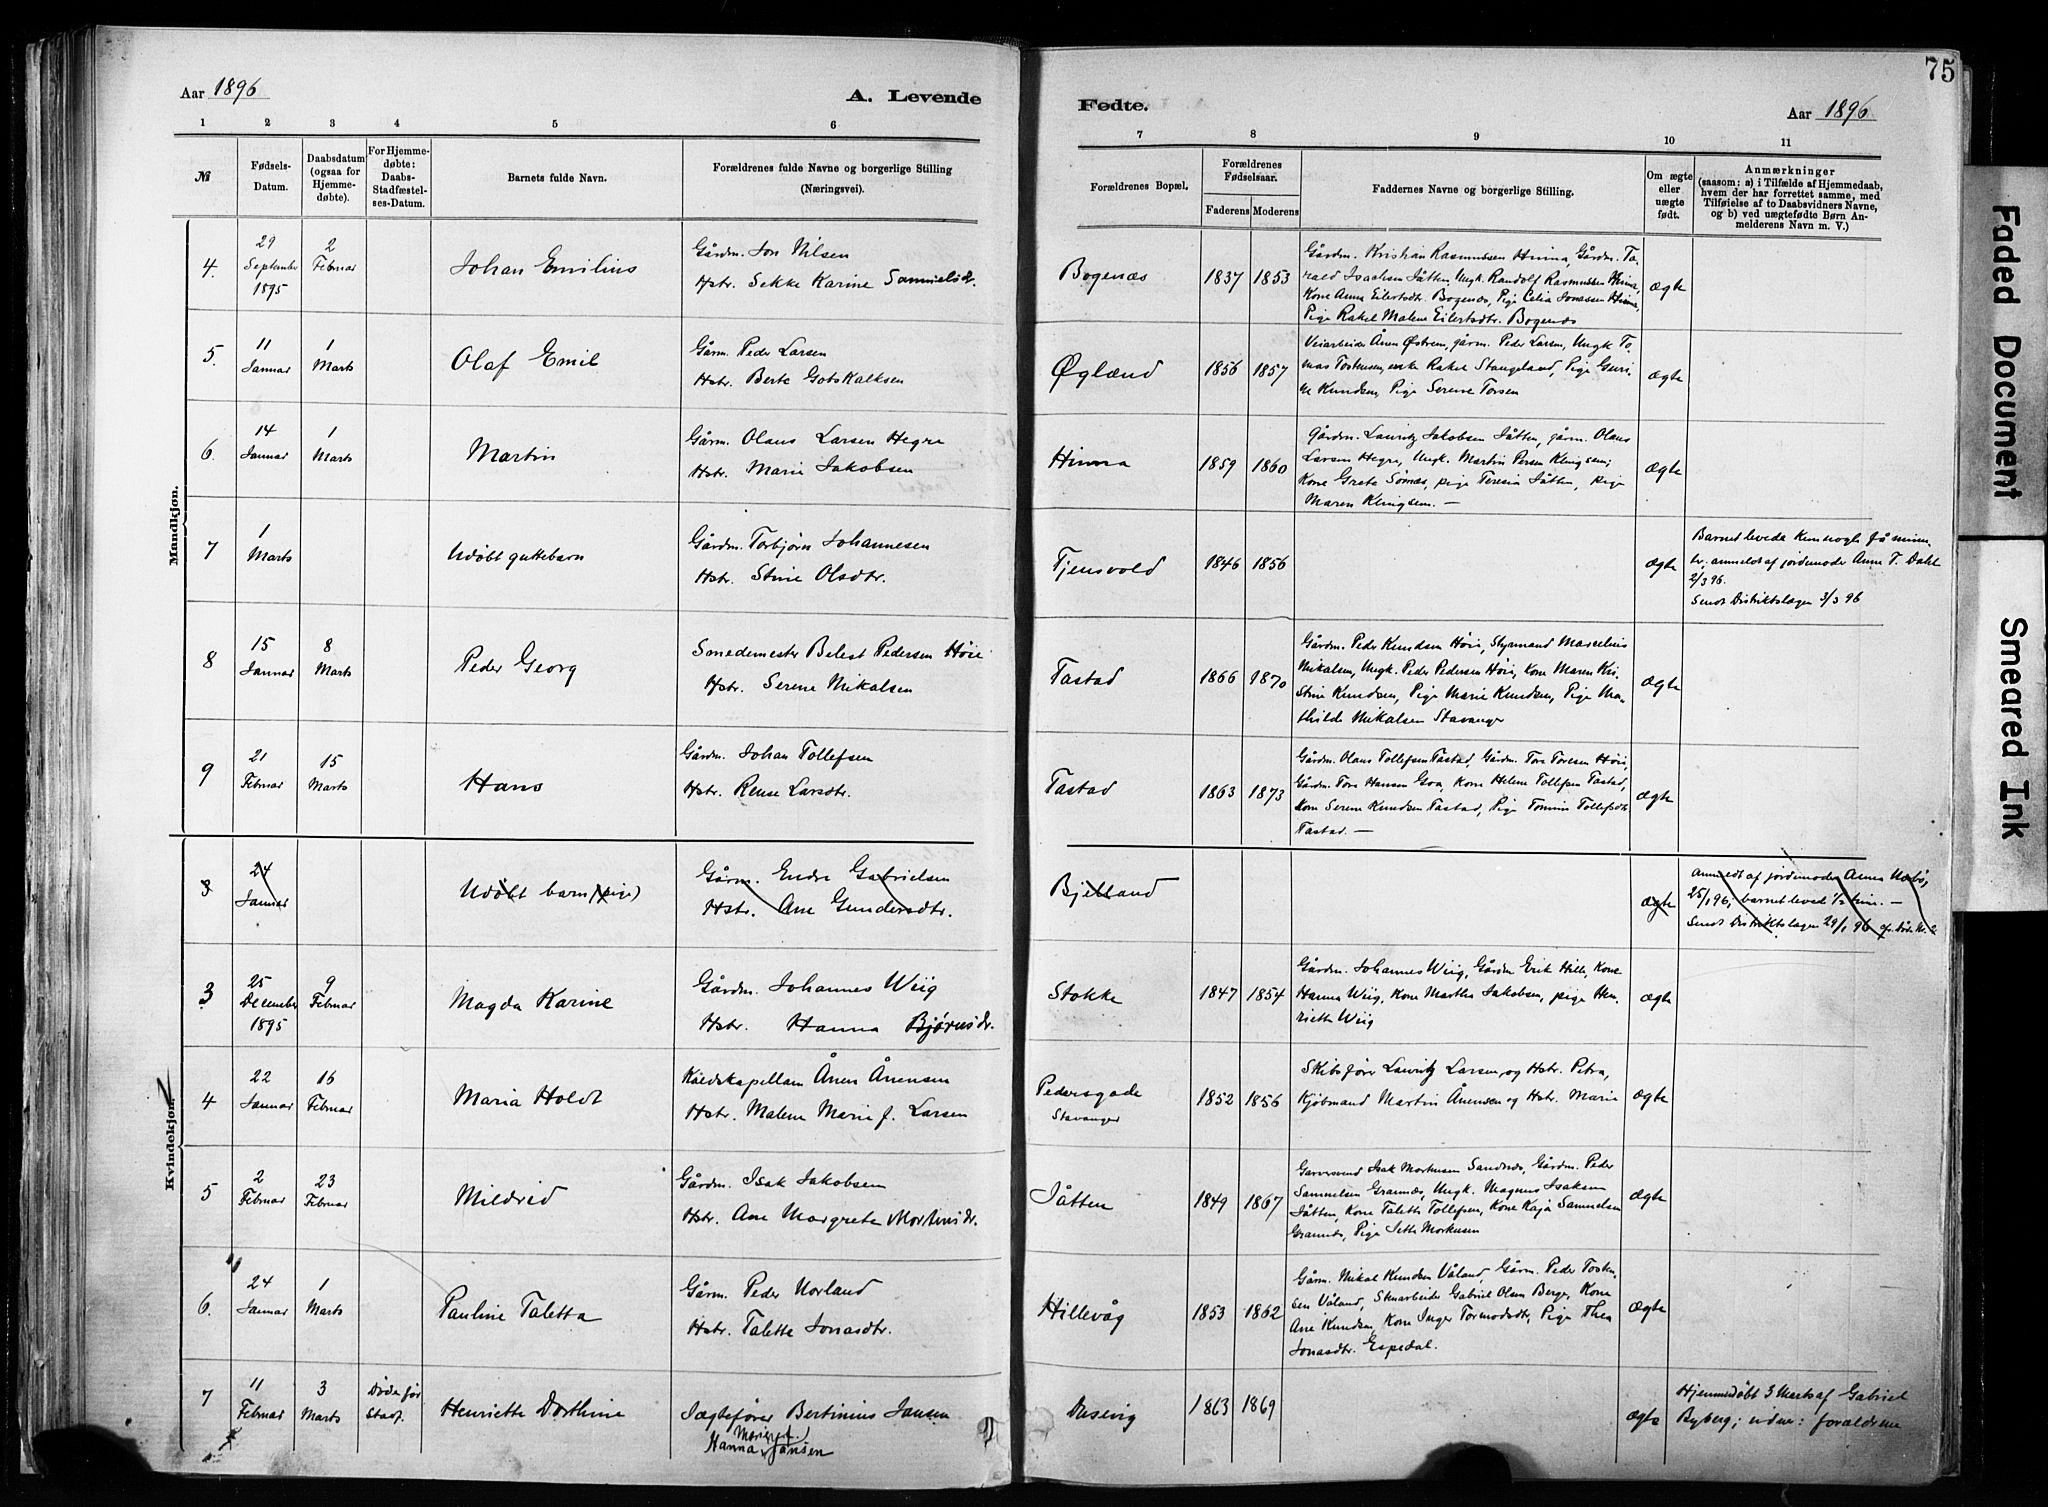 75
Aar 1896
A. Levende
Fødte.
Aar 1896
1 2 3 4 5 6 7 8 9 10 11
№
Fødsels-
Datum.
Daabsdatum
(ogsaa for
Hjemme-
døbte).
For Hjemme-
døbte:
Daabs-
Stadfæstel-
ses-Datum.
Barnets fulde Navn.
Forældrenes fulde Navne og borgerlige Stilling
(Næringsvei).
Forældrenes Bopæl.
Forældrenes
Fødselsaar.
Faderens
Moderens
Faddernes Navne og borgerlige Stilling.
Om ægte
eller
uægte
født.
Anmærkninger
(saasom: a) i Tilfælde af Hjemmedaab,
hvem der har forrettet samme, med
Tilføielse af to Daabsvidners Navne,
og b) ved uægtefødte Børn An-
melderens Navn m. V.)
Mandkjøn.
4.
29
September
1895
2
Februar
Johan Emilius
Gårdm. Jon Nilsen
Hstr. Sekke Karine Samuelsdr.
Bogenæs
1837
1853
Gårdm. Kristian Rasmussen Hinna, Gårdm. To-
rald Isachsen Jåtten, Ungk. Randolf Rasmussen Hinna,
Kone Anna Eilertsdtr. Bogenæs, Pige Celia Jonassen Hinna,
Pige Rakel Malene Eilertsdtr. Bogenæs
ægte
5.
11
Januar
1
Marts
Olaf Emil
Gårm. Peder Larsen
Hstr. Berte Gotskalksen
Øglænd
1856
1857
Veiarbeider Ånen Østrem, gårm. Peder Larsen, Ungk To-
mas Tostensen, enke Rakel Stangeland, Pige Guri-
ne Knudsen, Pige Serene Torsen
ægte
6.
14
Januar
1
Marts
Martin
Gårm. Olaus Larsen Hegre
Hstr. Marie Jakobsen
Hinna
1859
1860
Gårdm. Lauritz Jakobsen Jåtten, gårm. Olaus
Larsen Hegre, Ungk. Martin Persen
Kone Grete Sømæs, pige Teresia Jåtten, pige
Maren
ægte
7
1
Marts
Udøbt guttebarn
Gårdm. Torbjørn Johannesen
Hstr. Stine Olsdtr.
Tjensvold
1846
1856
ægte
Barnet levede kun nogle få minut-
ter, anmeldt af jordemoder Anne T. Dahl
2/3 96.
Sendt Distriktslægen 3/3 96
8
15
Januar
8
Marts
Peder Georg
Smedemester Belest Pedersen Høie
Hstr. Serene Mikalsen
Tastad
1866
1870
Gårdm. Peder Knudsen Høie, Styrmand Marselius
Mikalsen, Ungk. Peder Pedersen Høie, Kone Maren Kri-
stine Knudsen, Pige Marie Knudsen, Pige Ma-
thilde Mikalsen Stavanger
ægte
9
21
Februar
15
Marts
Hans
Gårdm. Johan Tollefsen
Hstr. Rense Larsdtr.
Tastad
1863
1873
Gårdm. Olaus Tollefsen Tastad, Gårdm. Tore Toresen Høie,
Gårdm Tore Hansen Goa, Kone Helene Tollefsen Tastad,
Kone Serene Knudsen Tastad, Pige Tomine Tollefsdtr
Tastad. —
ægte
Kvindekjøn.
3
24
Januar
Udøbt barn (pige)
Gårm. Endre Gabrielsen
Hstr. Ane Gundersdtr.
Bjelland
ægte
Anmeldt af jordemoder Anna
25/1 96; barnet levede 1/2 time. —
Sendt Distriktslægen 29/1 96 cfr. døde Nr. 2
3
25
December
1895
9
Februar
Magda Karine
Gårdm. Johannes Wiig
Hstr. Hanna Bjørnsdr.
Stokke
1847
1854
Gårdm. Johannes Wiig, Gårdm Erik Hille, Kone
Hanna Wiig, Kone Martha Jakobsen, pige Hen-
riette Wiig
ægte
4
22
Januar
16
Februar
Maria Holdt
Koldskapellan Ånen Ånensen
Hstr. Malene Marie f. Larsen
Pedersgade
Stavanger
1852
1856
Skibsfører Lauritz Larsen, og Hstr. Petra,
Kjøbmand Martin Ånensen og Hstr. Marie
ægte
5
2
Februar
23
Februar
Mildrid
Gårdm. Isak Jakobsen
Hstr. Ane Margrete Mortensdr.
Jåtten
1849
1867
Garversvend Isak Morkusen Sandnæs, Gårdm. Peder
Samuelsen Grannæs, Ungk. Magnus Isaksen
Jåtten, Kone Taletta Tollefsen, Kone Kaja Samuelsen
Grannæs, Pige Jette Morkusen
ægte
6.
24
Januar
1
Marts
Pauline Taletta
Gårm. Peder Norland
Hstr. Talette Jonasdtr.
Hillevåg
1853
1862
Gårm. Mikal Knudsen Våland, Gårm. Peder Tosten-
sen Våland, Skoarbeider Gabriel Olsen Berge, Kone
Ane Knudsen, Kone Inger Tormodsdtr, Pige Thea
Jonasdtr. Espedal.
ægte
7
11
Februar
3
Marts
Døde før
Stadf.
Henriette Dorthine
Jægtefører Bertinius Jansen
Hanna Jansen
Dusevig
1863
1869
ægte
Hjemmedøbt 3 Marts af Gabriel
Byberg; vidner: forældrene
Faded Document
Smeared Ink